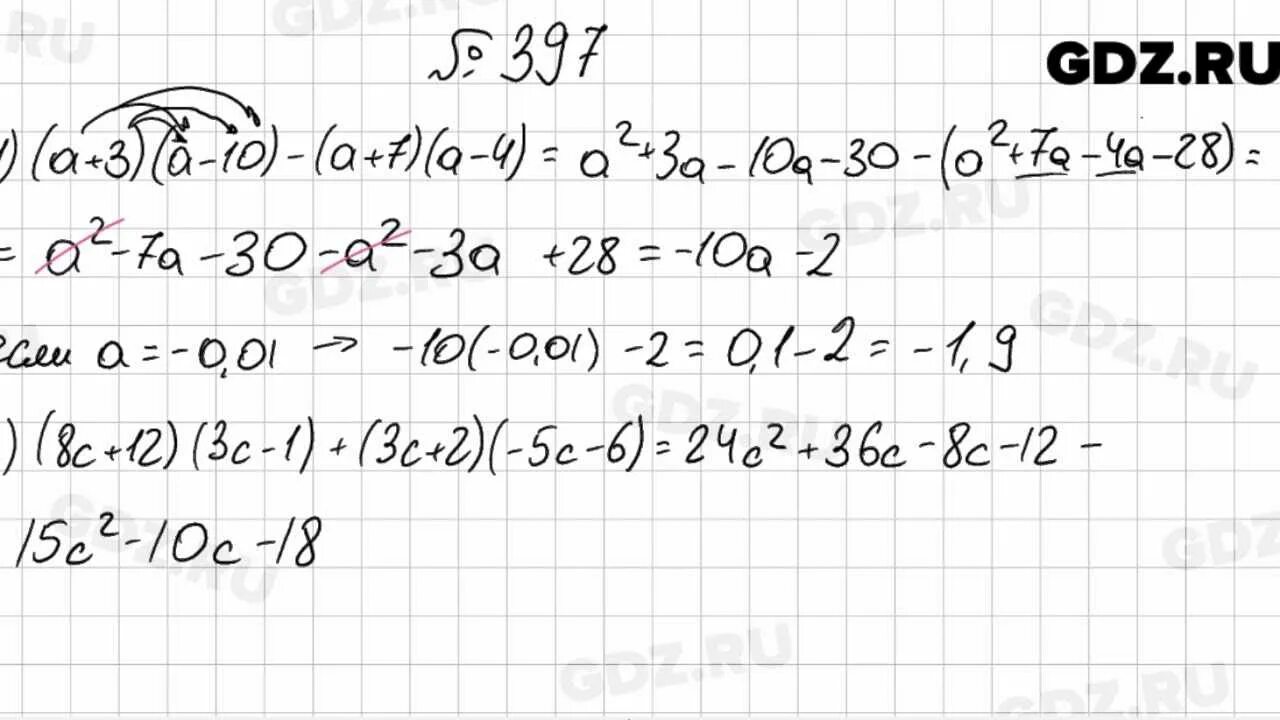 № 397
GDZ.RU
1) (a+3)(a-10)-(a+7)(a-4)= a²+3a-10a-30-(a²+7a-4a-28)=
= a²-7a-30-a²-3a +28=-10a-2
если a=-0,01 → -10(-0,01) -2=0,1-2=-1,9
) (8c+12)(3c-1)+(3c+2)(-5c-6)=24c²+36c-8c-12-
15c²-10c-18